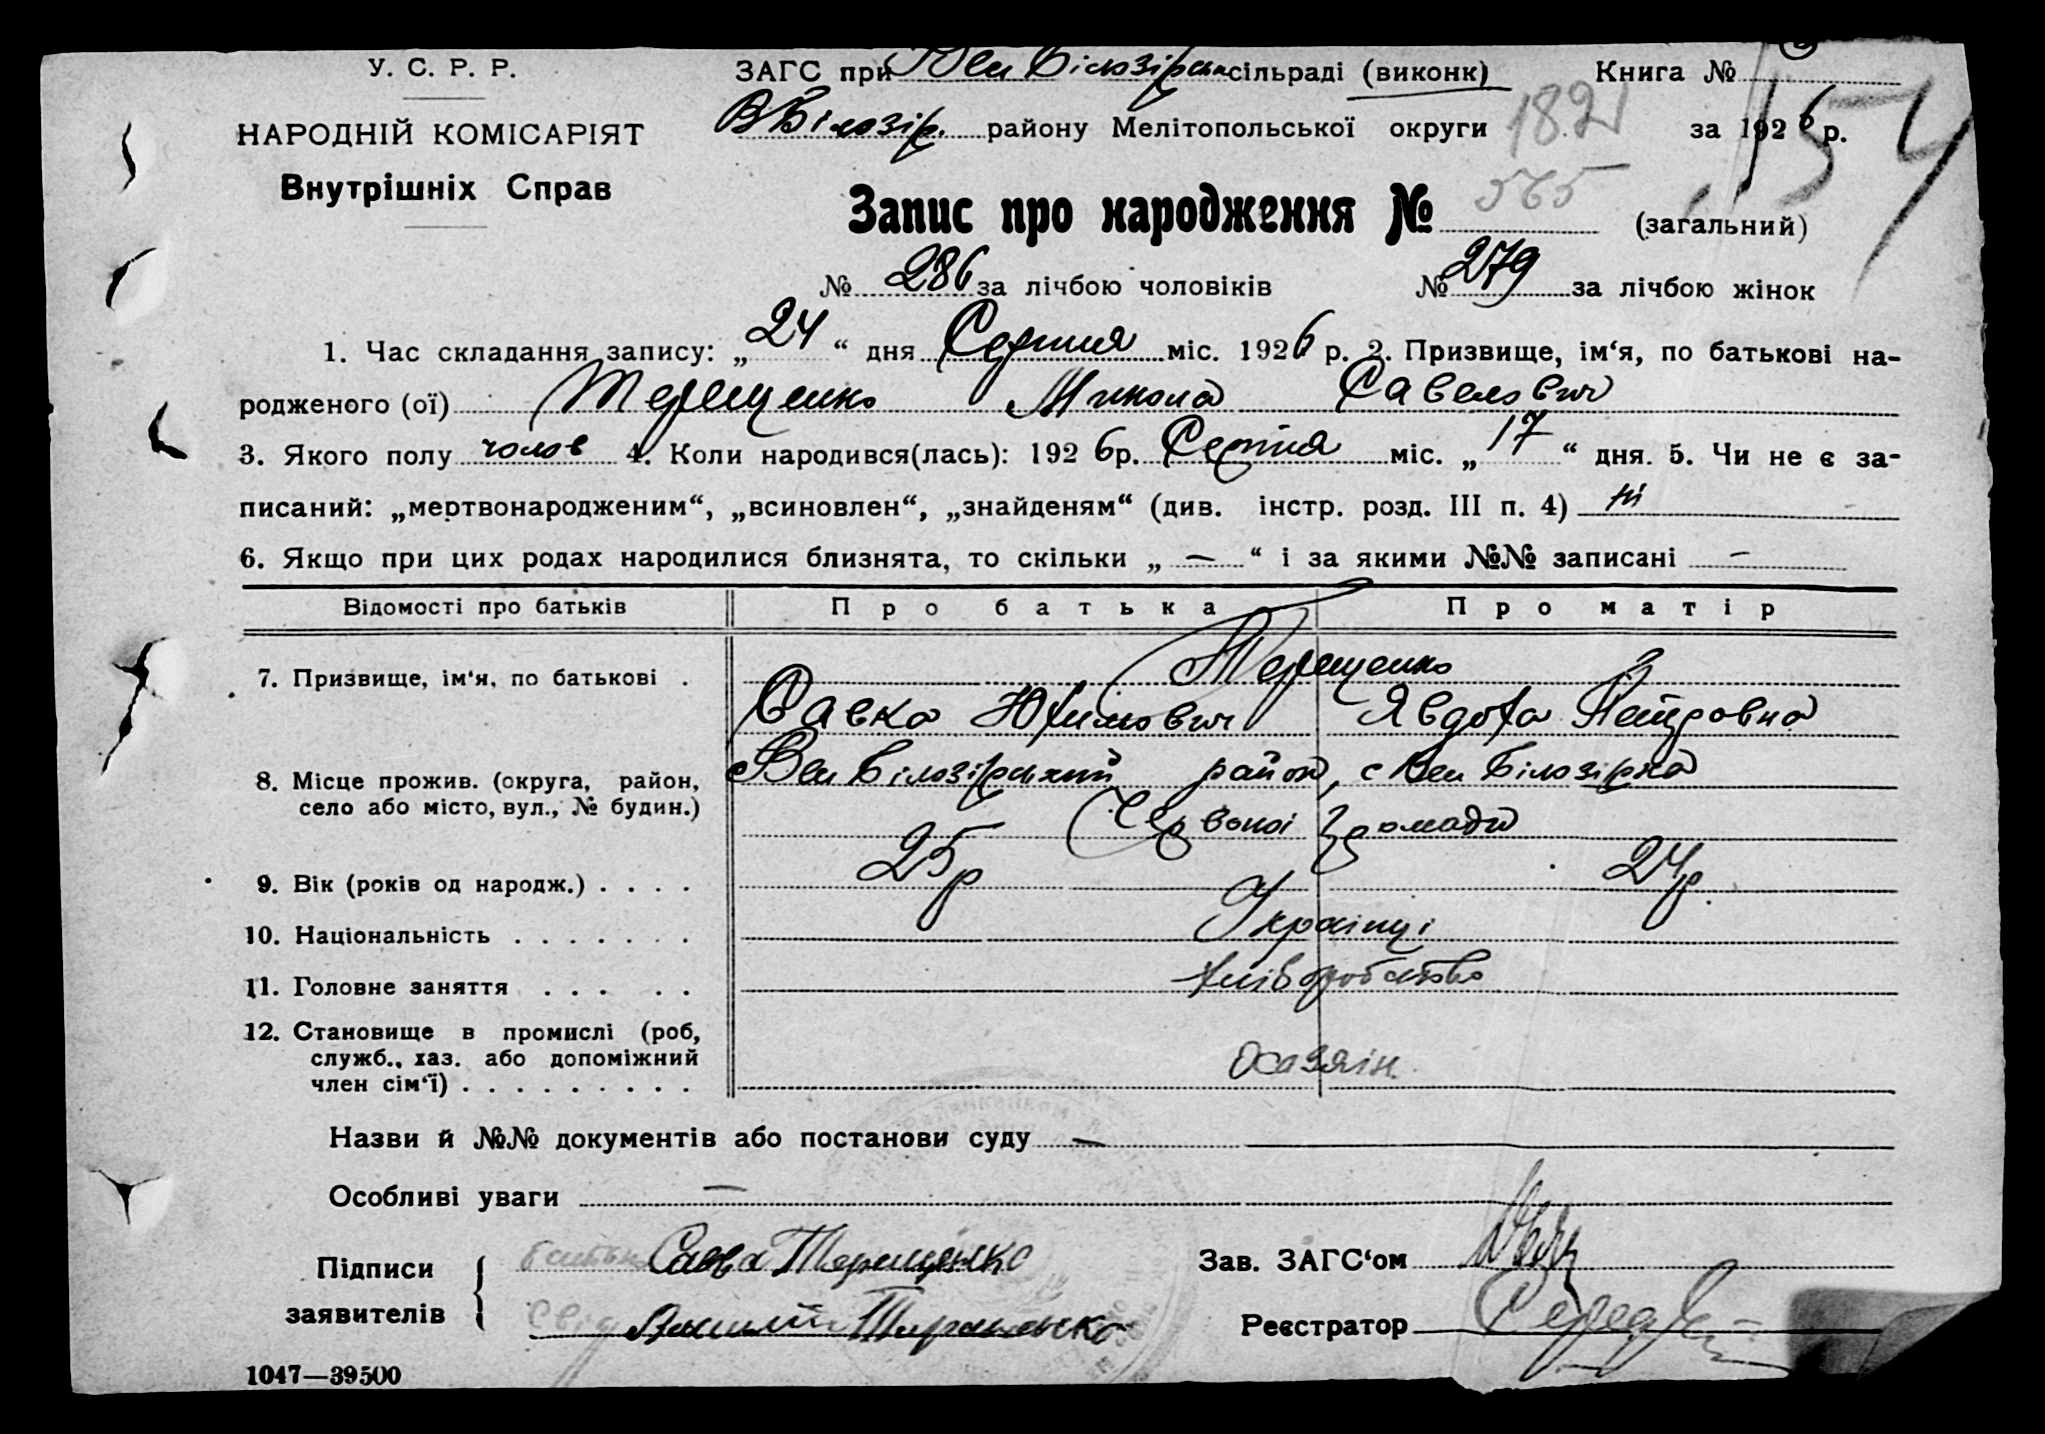 У. С. Р. Р.
НАРОДНІЙ КОМІСАРІЯТ
Внутрішніх Справ
ЗАГС при Вел Білозірськ сільраді (виконк) Книга №
В Білозір. району Мелітопольської округи 182 за 1926 р.
154
Запис про народження № 565 (загальний)
№ 286 за лічбою чоловіків № 279 за лічбою жінок
1. Час складання запису: „24“ дня Серпня міс. 1926 р. 2. Призвище, ім‘я, по батькові на-
родженого (ої) Терещенко Микола Савелович
3. Якого полу чолов 4. Коли народився(лась): 1926 р. Серпня міс. „17“ дня. 5. Чи не є за-
писаний: „мертвонародженим“, „всиновлен“, „знайденям“ (див. інстр. розд. III п. 4) ні
6. Якщо при цих родах народилися близнята, то скільки „ — “ і за якими №№ записані —
Відомості про батьків Про батька Про матір
7. Призвище, ім‘я, по батькові . Терещенко
Савка Юхимович Явдоха Петровна
8. Місце прожив. (округа, район, Вел Білозірський район, с Вел Білозірка
село або місто, вул., № будин.) Червоної Громади
9. Вік (років од народж.) . . . . 25 р 24 р.
10. Національність . . . . . . . Українці
11. Головне заняття . . . . . Хліборобство
12. Становище в промислі (роб,
служб., хаз. або допоміжний Хазяїн
член сім‘ї) . . . . . . . . .
Назви й №№ документів або постанови суду —
Особливі уваги —
Підписи батько Савка Терещенко Зав. ЗАГС‘ом
заявителів Свід Реєстратор
1047—39500